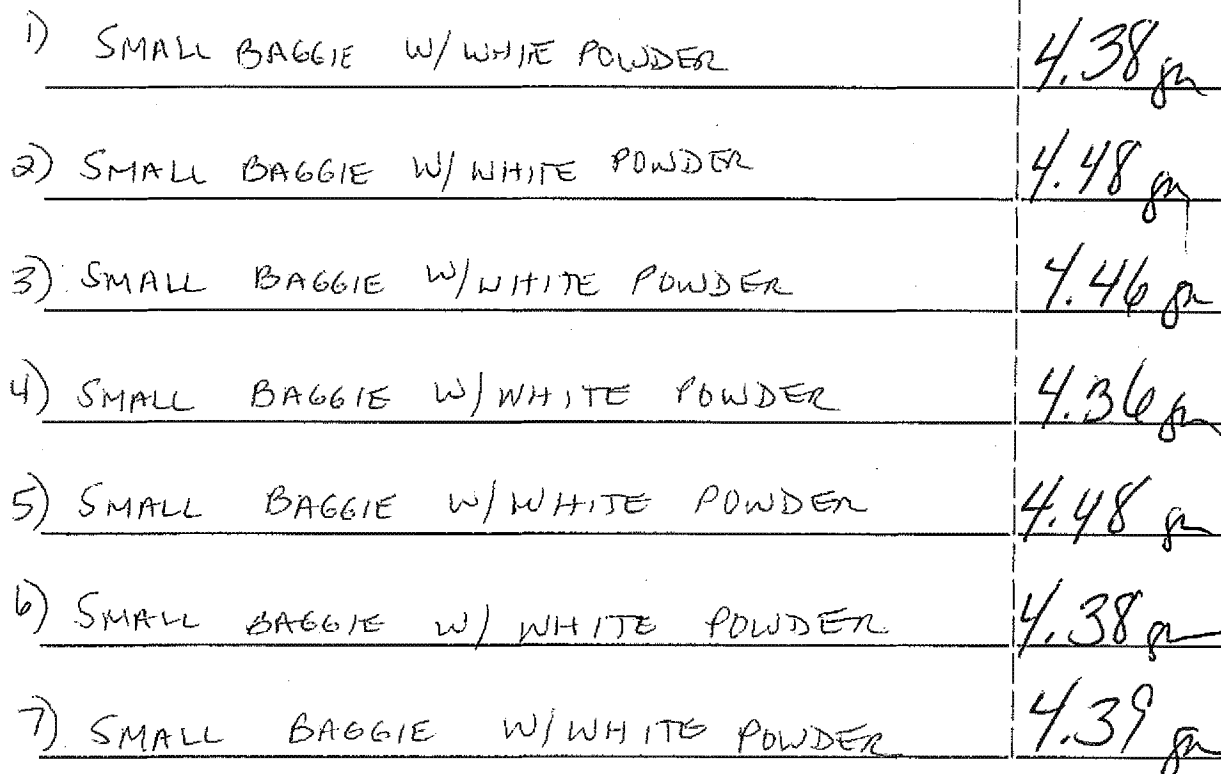 1) SMALL BAGGIE W/ WHITE POWDER 4.38 gm
2) SMALL BAGGIE W/ WHITE POWDER 4.48 gm
3) SMALL BAGGIE W/ WHITE POWDER 4.46 gm
4) SMALL BAGGIE W/ WHITE POWDER 4.36 gm
5) SMALL BAGGIE W/ WHITE POWDER 4.48 gm
6) SMALL BAGGIE W/ WHITE POWDER 4.38 gm
7) SMALL BAGGIE W/ WHITE POWDER 4.39 gm